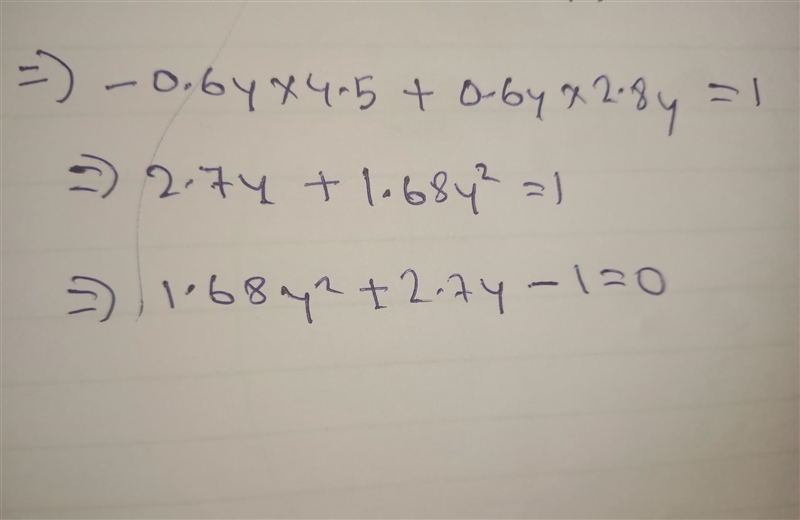 ⇒ - 0.6y × 4.5 + 0.6y × 2.8y = 1
⇒ 2.7y + 1.68y² = 1
⇒ 1.68y² + 2.7y - 1 = 0